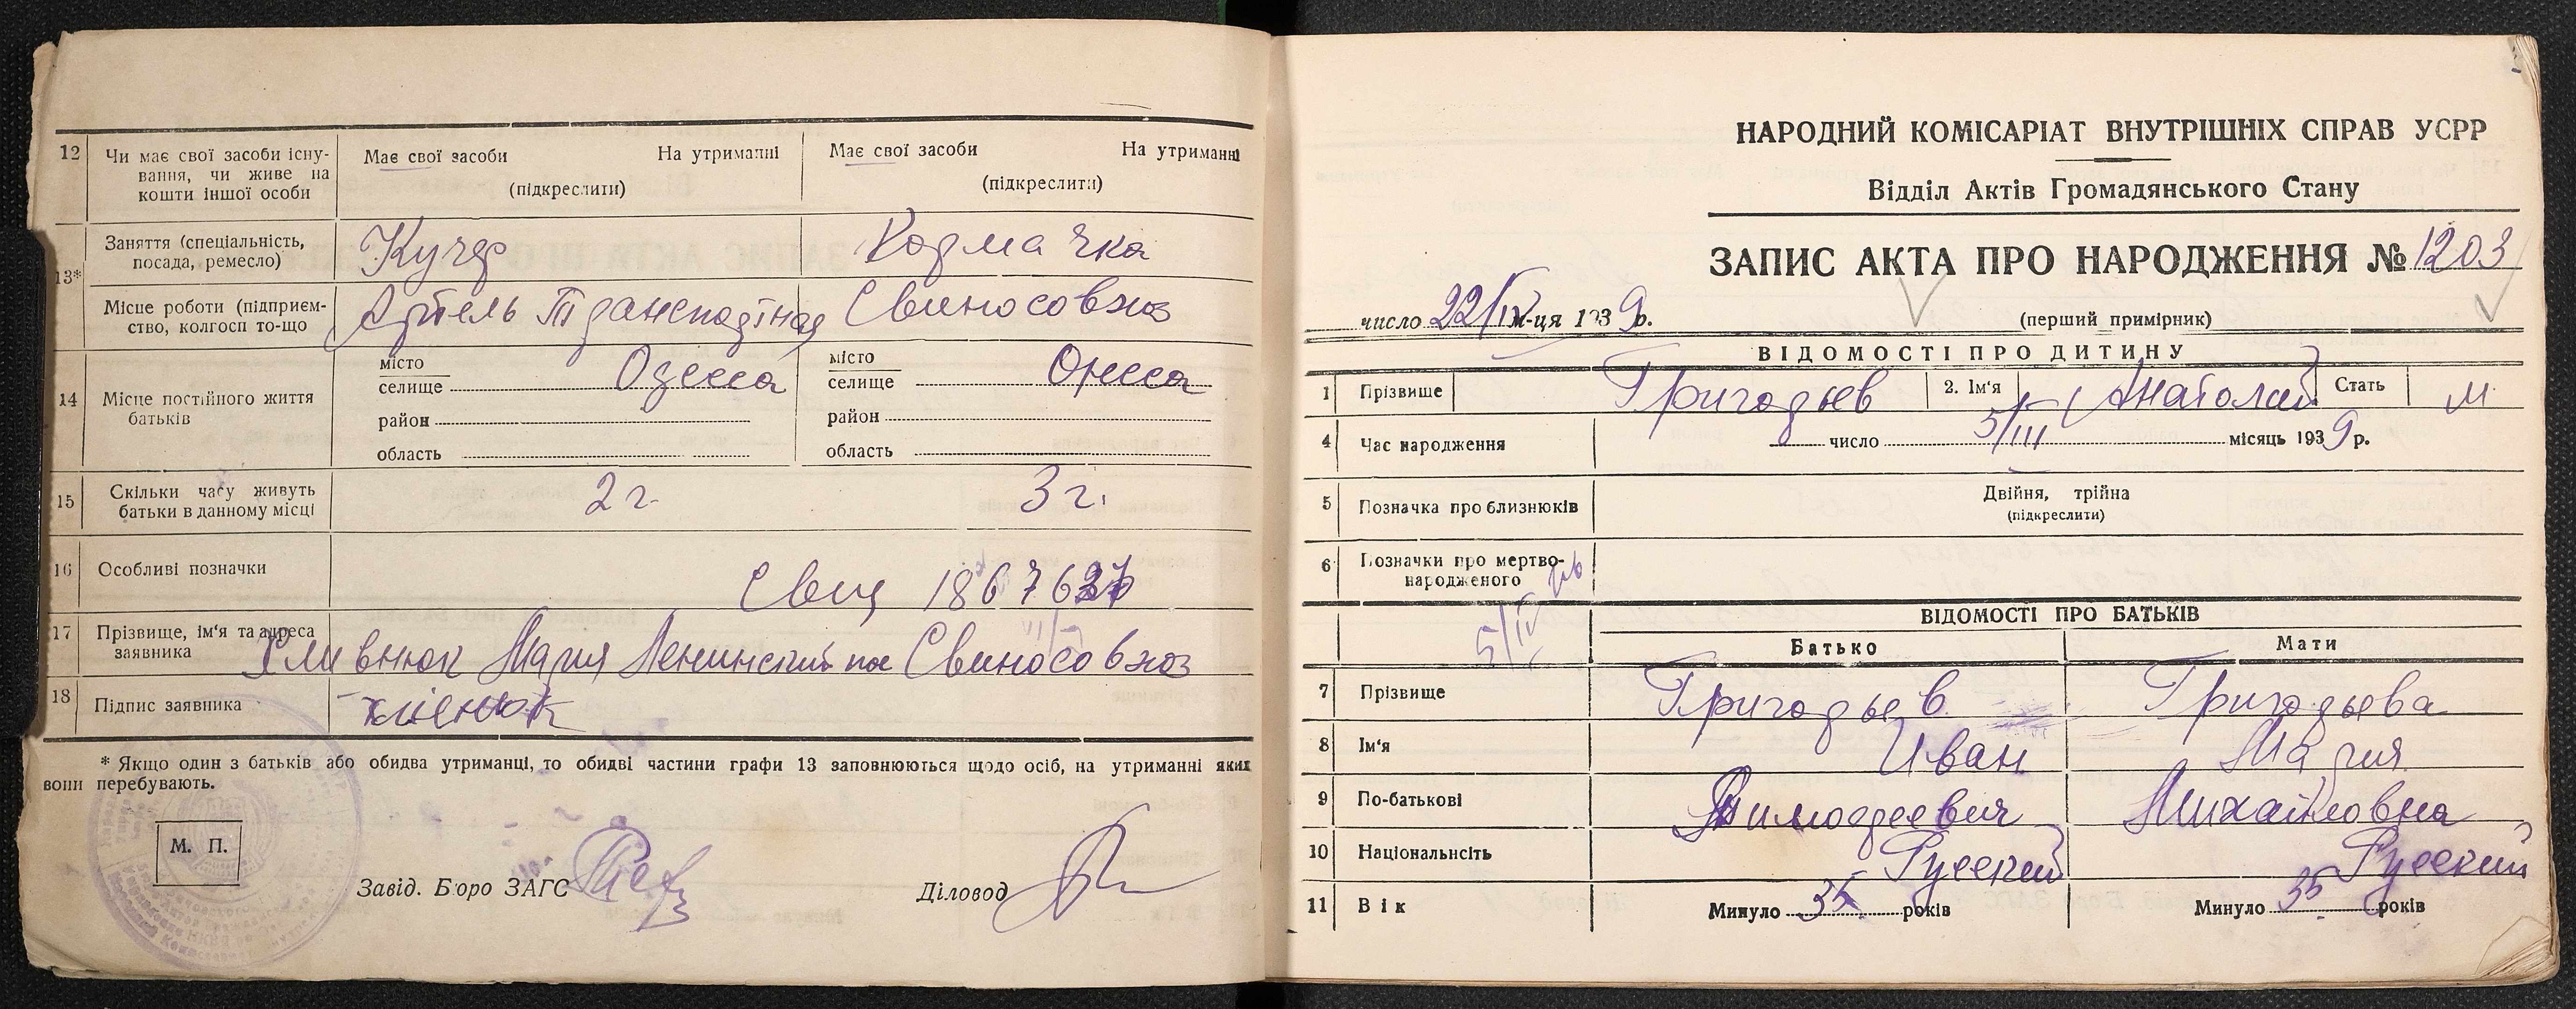 12 Чи має свої засоби існу- Має свої засоби На утриманні Має свої засоби На утриманні
вання, чи живе на
кошти іншої особи (підкреслити) (підкреслити)
Заняття (спеціальність, Кучер Кормачка
посада, ремесло)
13*
Місце роботи (підприєм- Артель Транспортная Свиносовхоз
ство, колгосп то-що
14 Місце постійного життя місто Одесса місто Одесса
батьків селище селище
район район
область область
15 Скільки часу живуть 2 г. 3 г.
батьки в данному місці
16 Особливі позначки
17 Прізвище, ім'я та адреса Мария Ленинский Свиносовхоз
заявника
18 Підпис заявника
* Якщо один з батьків або обидва утриманці, то обидві частини графи 13 заповнюються щодо осіб, на утриманні яких
вони перебувають.
М. П.
Завід. Бюро ЗАГС Діловод
НАРОДНИЙ КОМІСАРІАТ ВНУТРІШНІХ СПРАВ УСРР
Відділ Актів Громадянського Стану
ЗАПИС АКТА ПРО НАРОДЖЕННЯ № 1203
число 22/IV м-ця 1939 р. (перший примірник)
ВІДОМОСТІ ПРО ДИТИНУ
1 Прізвище Григорьев 2. Ім'я Анатолий Стать м
4 Час народження число 5/III місяць 1939 р.
5 Позначка про близнюків Двійня, трійна
(підкреслити)
6 Позначки про мертво-
народженого
ВІДОМОСТІ ПРО БАТЬКІВ
Батько Мати
7 Прізвище Григорьев Григорьева
8 Ім'я Иван Мария
9 По-батькові Тимофеевич Михайловна
10 Національнсіть Русский Русский
11 Вік Минуло 35 років Минуло 35 років